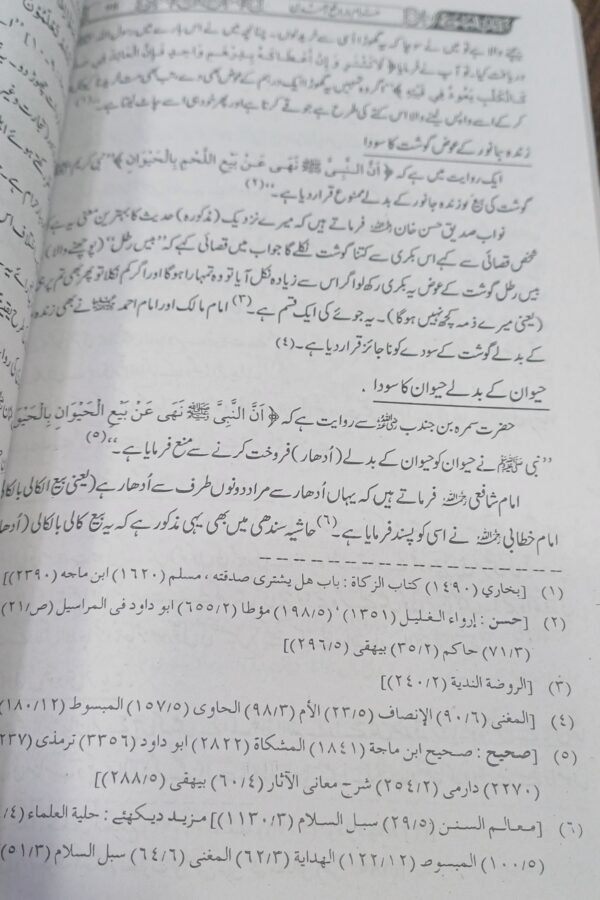 بیچنے والا ہے تو میں نے سوچا کہ یہ گھوڑا اُسی سے خرید لوں۔ چنانچہ میں نے اس بارے میں
دریافت کیا، تو آپ نے فرمایا ﴿ لَا تَشْتَرِ وَإِنْ أَعْطَاكَهُ بِدِرْهَمٍ وَاحِدٍ فَإِنَّ الْعَائِدَ فِي
كَالْكَلْبِ يَعُودُ فِي قَيْئِهِ ﴾ ”اگر وہ تمہیں یہ گھوڑا ایک درہم کے عوض بھی دے تب بھی مت
کر کے اسے واپس لینے والا اس کتے کی طرح ہے جو قے کرتا ہے اور پھر خود ہی اسے چاٹ لیتا ہے۔“(۱)
زندہ جانور کے عوض گوشت کا سودا
ایک روایت میں ہے کہ ﴿ أَنَّ النَّبِيَّ ﷺ نَهَى عَنْ بَيْعِ اللَّحْمِ بِالْحَيَوَانِ ﴾ ”نبی کریم
گوشت کی بیع کو زندہ جانور کے بدلے ممنوع قرار دیا ہے۔“(۲)
نواب صدیق حسن خان رحمہ اللہ فرماتے ہیں کہ میرے نزدیک (مذکورہ) حدیث کا بہترین معنی یہ ہے
شخص قصائی سے کہے اس بکری سے کتنا گوشت نکلے گا جواب میں قصائی کہے کہ ”بیس رطل“ (پوچھنے والا)
بیس رطل گوشت کے عوض یہ بکری رکھ لو اگر اس سے زیادہ نکل آیا تو وہ تمہارا ہوگا اور اگر کم نکلا تو پھر بھی تم پر
(یعنی میرے ذمہ کچھ نہیں ہوگا)۔ یہ جوئے کی ایک قسم ہے۔(۳) امام مالک اور امام احمد نے بھی زندہ
کے بدلے گوشت کے سودے کو ناجائز قرار دیا ہے۔(۴)
حیوان کے بدلے حیوان کا سودا
حضرت سمرہ بن جندب رضی اللہ عنہ سے روایت ہے کہ ﴿ أَنَّ النَّبِيَّ ﷺ نَهَى عَنْ بَيْعِ الْحَيَوَانِ
”نبی ﷺ نے حیوان کو حیوان کے بدلے (اُدھار) فروخت کرنے سے منع فرمایا ہے۔“(۵)
امام شافعی رحمہ اللہ فرماتے ہیں کہ یہاں اُدھار سے مراد دونوں طرف سے اُدھار ہے (یعنی بیع الکالی بالکالی
امام خطابی رحمہ اللہ نے اسی کو پسند فرمایا ہے۔(۶) حاشیہ سندھی میں بھی یہی مذکور ہے کہ یہ بیع کالی بالکالی (اُدھا
(۱) [بخاري (۱٤۹۰) كتاب الزكاة : باب هل يشترى صدقته ، مسلم (۱٦۲۰) ابن ماجه (۲۳۹۰)]
(۲) [حسن : إرواء الغليل (۱۳۵۱) ، (۱۹۸/۵) مؤطا (٦۵۵/۲) ابو داود فى المراسيل (ص/۲۱)
(۷۱/۳) حاكم (۳۵/۲) بيهقى (۲۹٦/۵)]
(۳) [الروضة الندية (۲٤۰/۲)]
(٤) [المغنى (۹۰/٦) الإنصاف (۲۳/۵) الأم (۹۸/۳) الحاوى (۱۵۷/۵) المبسوط (۱۸۰/۱۲)
(۵) [صحيح : صحيح ابن ماجة (۱۸٤۱) المشكاة (۲۸۲۲) ابو داود (۳۳۵٦) ترمذى (۲۳۷
(۲۲۷۰) دارمى (۲۵٤/۲) شرح معانى الآثار (٦۰/٤) بيهقى (۲۸۸/۵)]
(٦) [معالم السنن (۲۹/۵) سبل السلام (۱۱۳۰/۳)] مزيد ديكهئے : حلية العلماء (٤/
(۱۰۰/۵) المبسوط (۱۲۲/۱۲) الهداية (٦۲/۳) المغنى (٦٤/٦) سبل السلام (۵۱/۳)